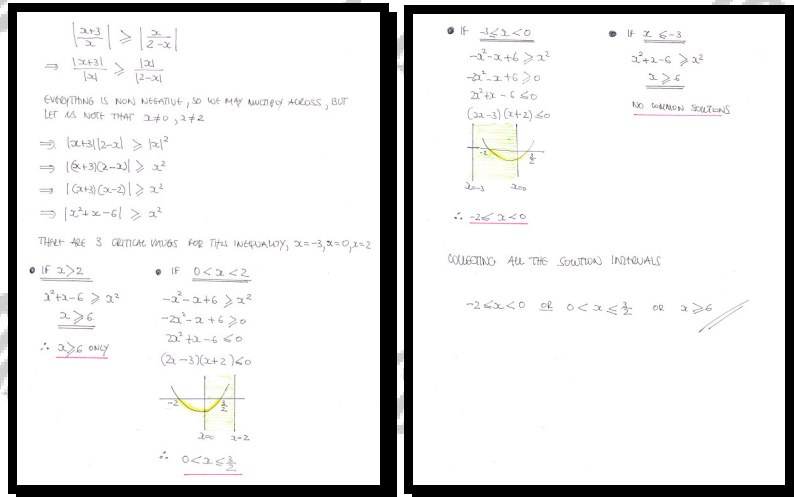 |x+3/x| ⩾ |x/2-x|
⇒ |x+3|/|x| ⩾ |x|/|2-x|
EVERYTHING IS NON NEGATIVE, SO WE MAY MULTIPLY ACROSS, BUT
LET US NOTE THAT x≠0, x≠2
⇒ |x+3||2-x| ⩾ |x|²
⇒ |(x+3)(2-x)| ⩾ x²
⇒ |(x+3)(x-2)| ⩾ x²
⇒ |x²+x-6| ⩾ x²
THERE ARE 3 CRITICAL VALUES FOR THIS INEQUALITY, x=-3, x=0, x=2
• IF x>2
x²+x-6 ⩾ x²
x⩾6
∴ x⩾6 ONLY
• IF 0<x<2
-x²-x+6 ⩾ x²
-2x²-x+6 ⩾0
2x²+x-6 ⩽0
(2x-3)(x+2)⩽0
-2 3/2
x=0 x=2
∴ 0<x⩽3/2
• IF -3⩽x<0
-x²-x+6 ⩾ x²
-2x²-x+6 ⩾0
2x²+x-6 ⩽0
(2x-3)(x+2)⩽0
-2 3/2
x=-3 x=0
∴ -2⩽x<0
• IF x⩽-3
x²+x-6 ⩾ x²
x⩾6
NO COMMON SOLUTIONS
COLLECTING ALL THE SOLUTION INTERVALS
-2⩽x<0 OR 0<x⩽3/2 OR x⩾6